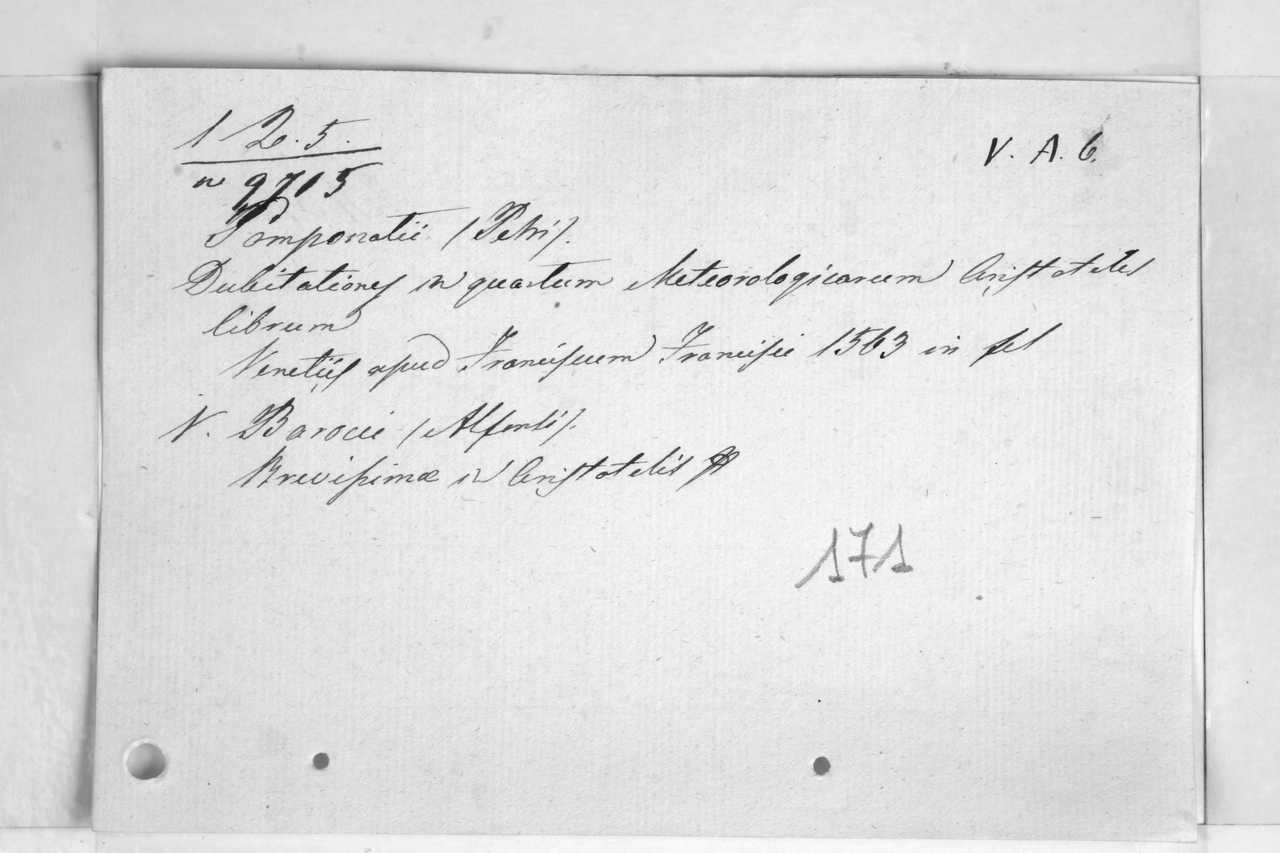 1 2. 5.
V. A. 6.
n 9715
Pomponatii (Petri).
Dubitationes in quartum Meteorologicarum Aristotelis
librum
Venetiis apud Franciscum Francisci 1563 in fol
V. Barocii (Alfonsi).
Brevissimæ in Aristotelis
171